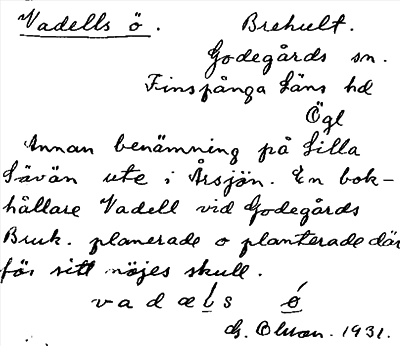 Vadells ö. Brehult.
Godegårds sn.
Finspånga Läns hd
Ögl
Annan benämning på Lilla
Sävön ute i Årsjön. En bok-
hållare Vadell vid Godegårds
Bruk. planerade o planterade där
för sitt nöjes skull.
v a d æ l s ö
G. Olson. 1931.